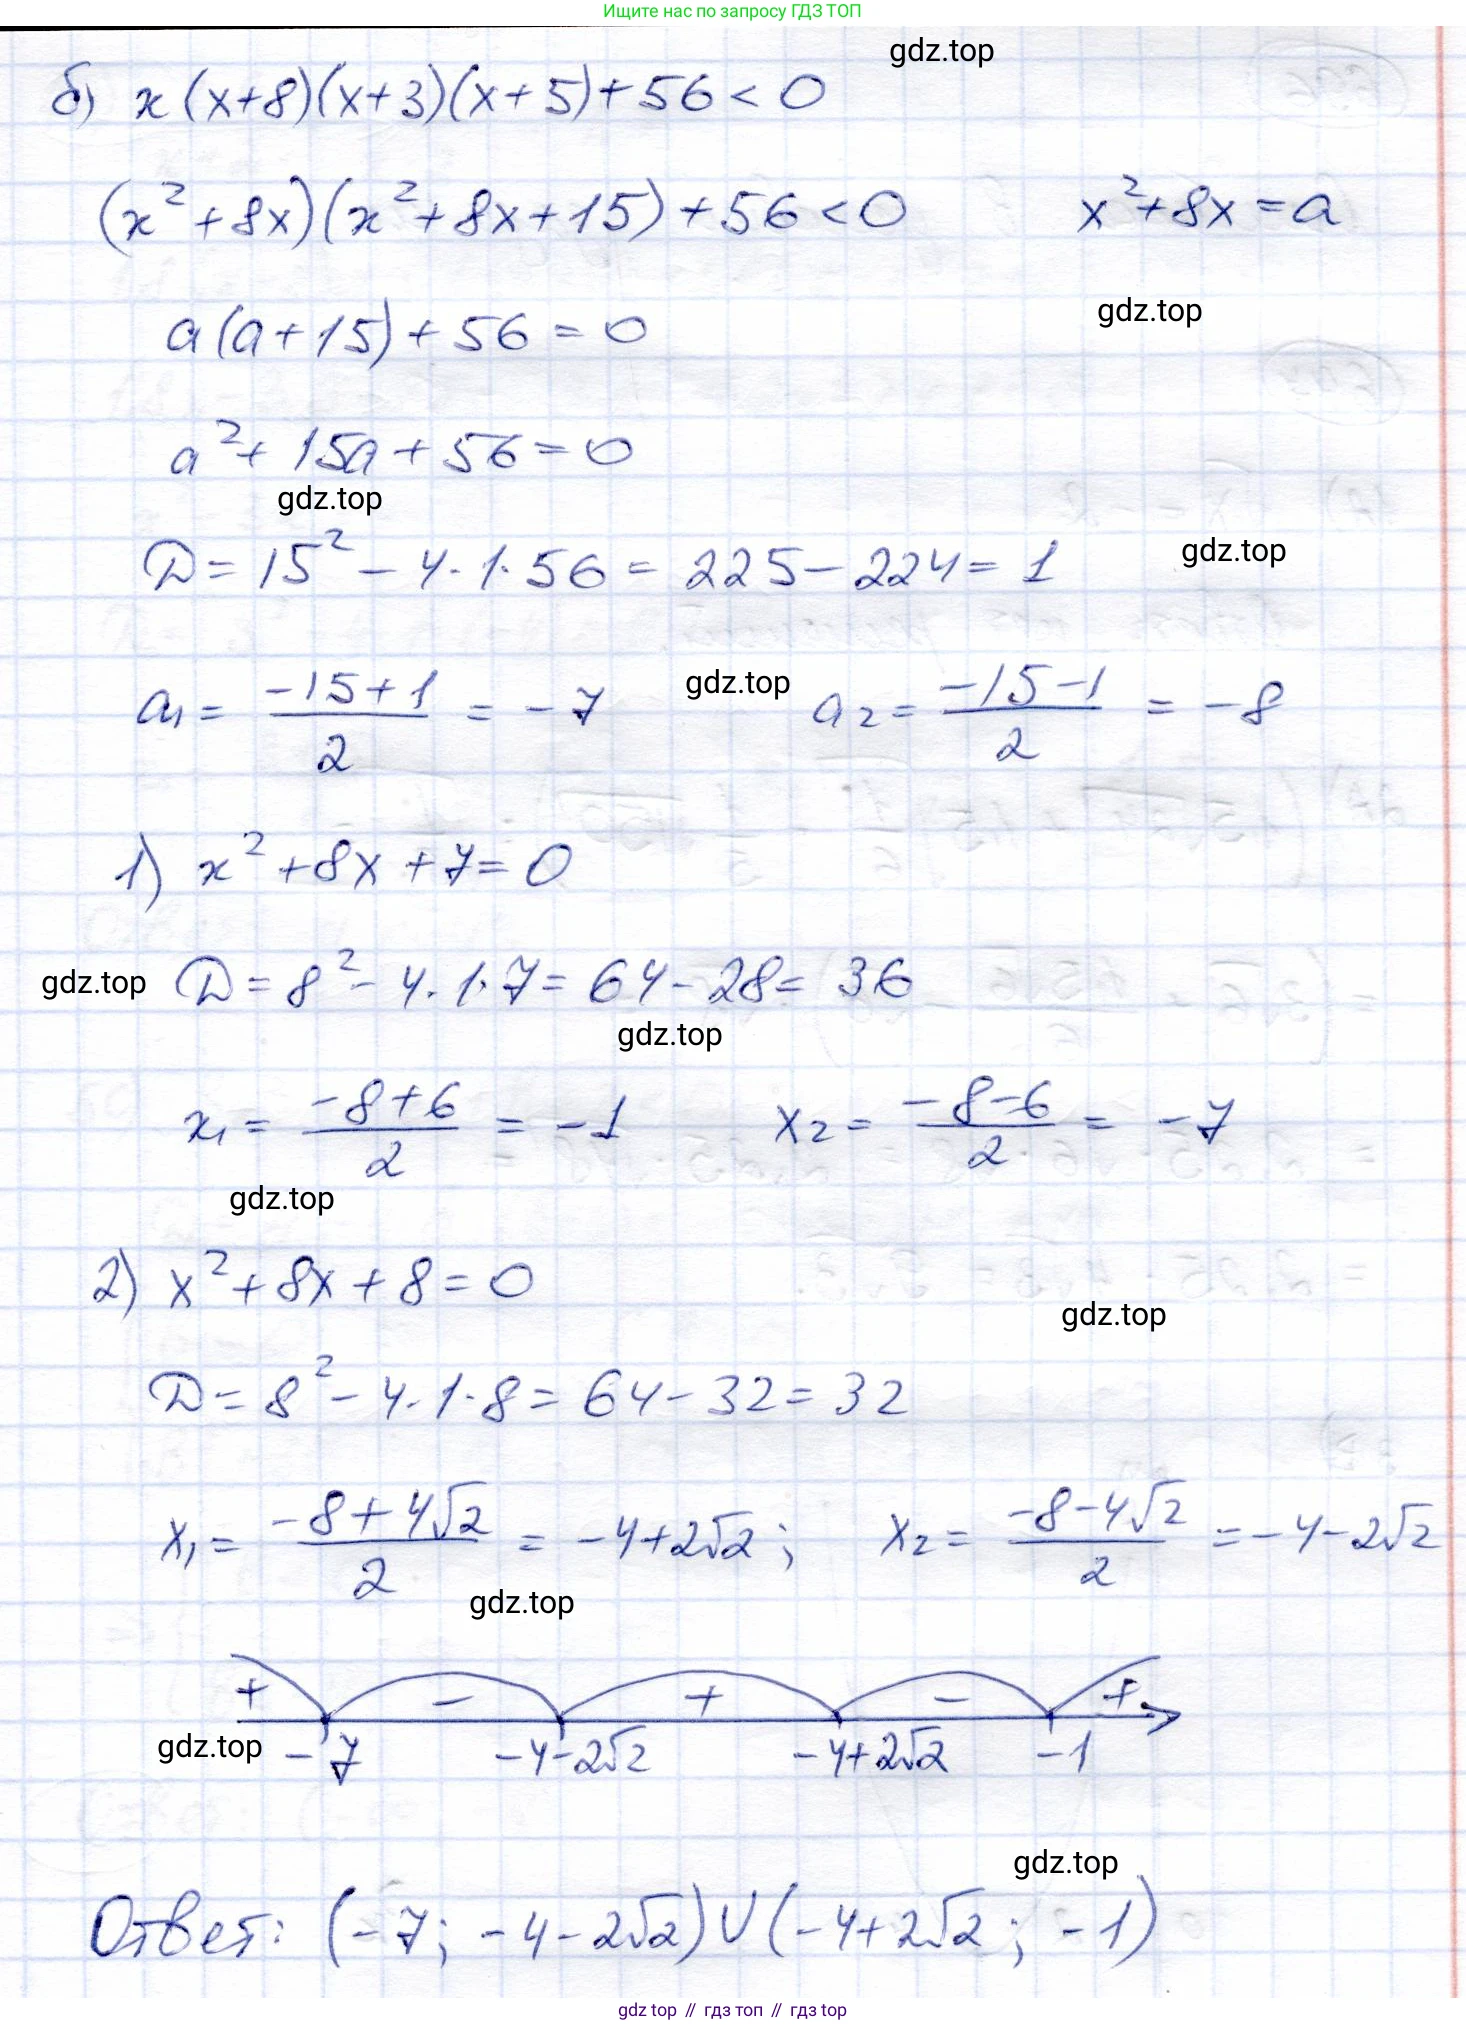 Ищите нас по запросу ГДЗ ТОП
gdz.top
б) x(x+8)(x+3)(x+5)+56<0
(x²+8x)(x²+8x+15)+56<0 x²+8x=a
gdz.top
a(a+15)+56=0
a²+15a+56=0
gdz.top
D=15²-4·1·56=225-224=1
gdz.top
a₁= (-15+1)/2 = -7 gdz.top a₂= (-15-1)/2 = -8
1) x²+8x+7=0
gdz.top D=8²-4·1·7=64-28=36
gdz.top
x₁= (-8+6)/2 = -1 x₂= (-8-6)/2 = -7
gdz.top
2) x²+8x+8=0
gdz.top
D=8²-4·1·8=64-32=32
x₁= (-8+4√2)/2 = -4+2√2; x₂= (-8-4√2)/2 = -4-2√2
gdz.top
+ - + - +
gdz.top -7 -4-2√2 -4+2√2 -1
gdz.top
Ответ: (-7; -4-2√2)∪(-4+2√2; -1)
gdz top // гдз топ // гдз top